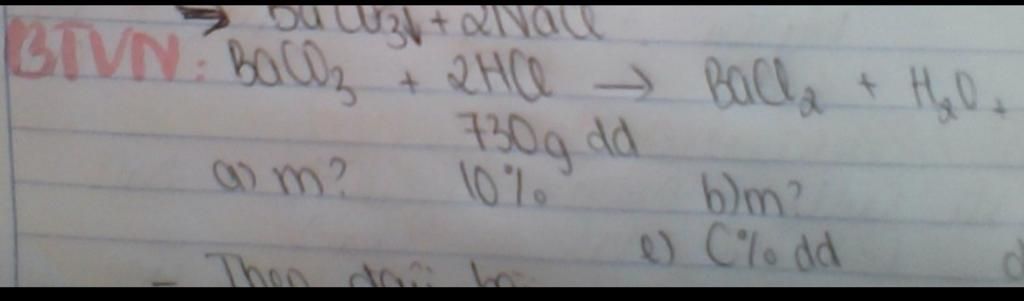 → BaCO3↓ + 2NaCl
BTVN: BaCO3 + 2HCl → BaCl2 + H2O +
730g dd
a) m? 10% b) m?
e) C% dd d
- Theo